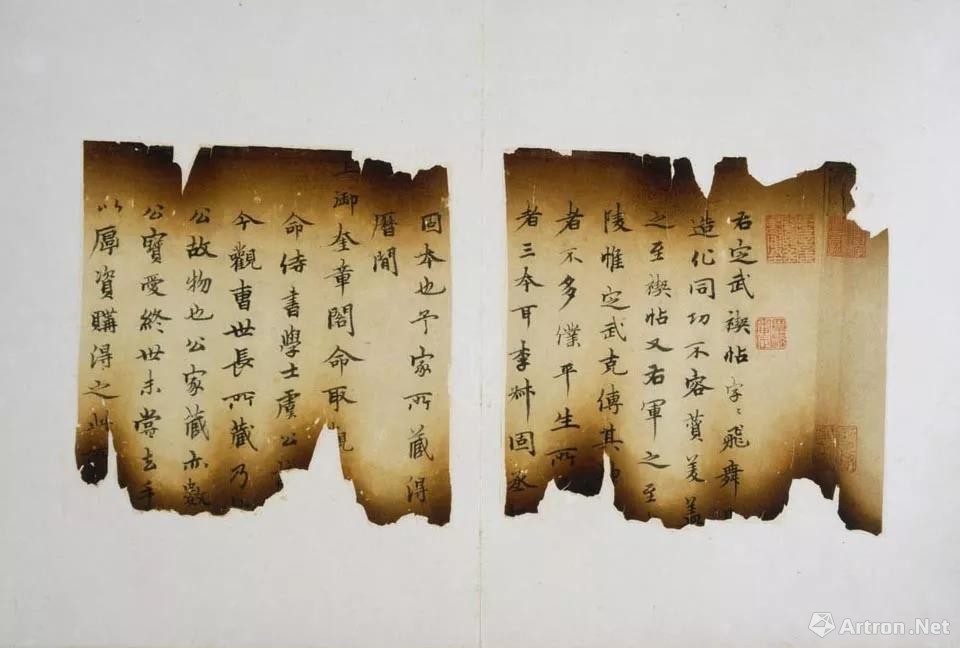 右定武禊帖字〻飛舞
造化同功不容賛美蓋
之至禊帖又右軍之至
陵惟定武克傳其
者不多僕平生所
者三本耳李叔固丞
固本也予家所藏得
曆間
上御奎章閣命取觀
命侍書學士虞公
今觀曺世長所藏乃
公故物也公家藏亦數
公寶愛終世未嘗去手
以厚資購得之此
Artron.Net